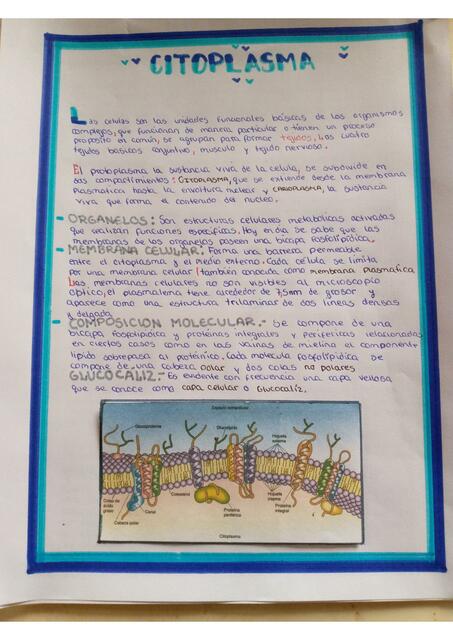 CITOPLASMA
Las celulas son las unidades funcionales básicas de los organismos
complejos, que funcionan de manera particular o tienen un proceso
proposito en común, se agrupan para formar tejidos, Los cuatro
tejidos basicos conjuntivo, musculo y tejido nervioso.
El protoplasma, la sustancia viva de la celula, se subdivide en
dos compartimientos: CITOPLASMA, que se extiende desde la membrana
Plasmatica hasta la envoltura nuclear y CARIOPLASMA, la sustancia
viva que forma el contenido del nucleo.
- ORGANELOS: Son estructuras celulares metabolicas activadas
que realizan funciones especificas. Hoy en dia se sabe que las
membranas de los organelos poseen una bicapa fosfolipidica.
- MEMBRANA CELULAR: Forma una barrera permeable
entre el citoplasma y el medio externo. Cada celula se limita
por una membrana celular (también conocida como membrana plasmatica
Las membranas celulares no son visibles al microscopio
optico, el plasmalema tiene alrededor de 7,5nm de grosor y
aparece como una estructura trilaminar de dos lineas densas
y delgada
- COMPOSICION MOLECULAR.- Se compone de una
bicapa fosfolipidica y proteinas integrales y perifericas relacionadas
en ciertos casos como en las vainas de mielina el component
lipido sobrepasa al protéinico. Cada molecula fosfolipidica se
compone de una cabeza polar y dos colas no polares
GLUCOCALIZ.- Es evidente con frecuencia una capa vellosa
que se conoce como capa celular o Glucocaliz.
Espacio extracelular
Glucoproteína
Glucolípido
Hojuela
externa
Colas de
ácido
graso
Canal
Colesterol
Proteína
periférica
Hojuela
interna
Proteína
integral
Cabeza polar
Citoplasma